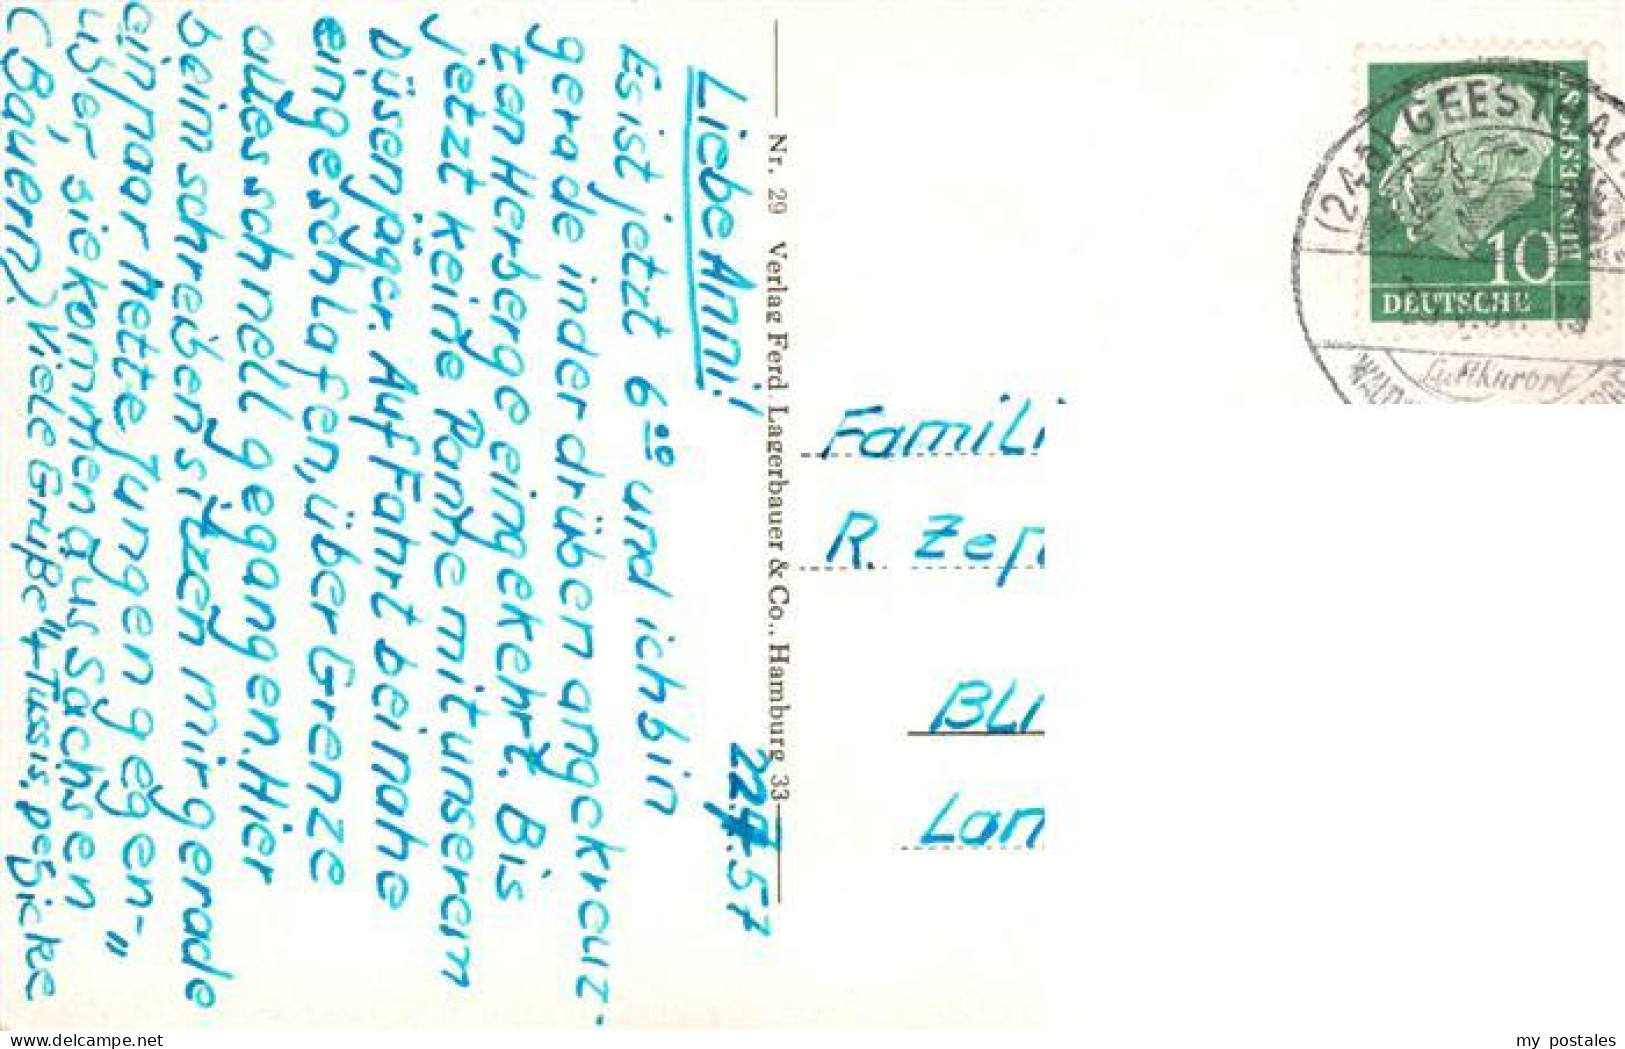 22.7.57
Liebe Anni!
Es ist jetzt 6 00 und ich bin
gerade in der drüben angekreuz-
ten Herberge eingekehrt. Bis
jetzt keine Panne mit unserem
Düsenjäger. Auf Fahrt beinahe
eingeschlafen, über Grenze
alles schnell gegangen. Hier
beim schreiben sitzen mir gerade
ein paar nette Jungen gegen-
über, sie kommen aus Sachsen
(Bauern). Viele Grüße"+Tussis.
Nr. 29 Verlag Ferd. Lagerbauer & Co., Hamburg 33
(24a) GEESTHACHT
Luftkurort
10
DEUTSCHE
BUNDESPOST
Famili
R. Zep
BLI
Lan
my postales